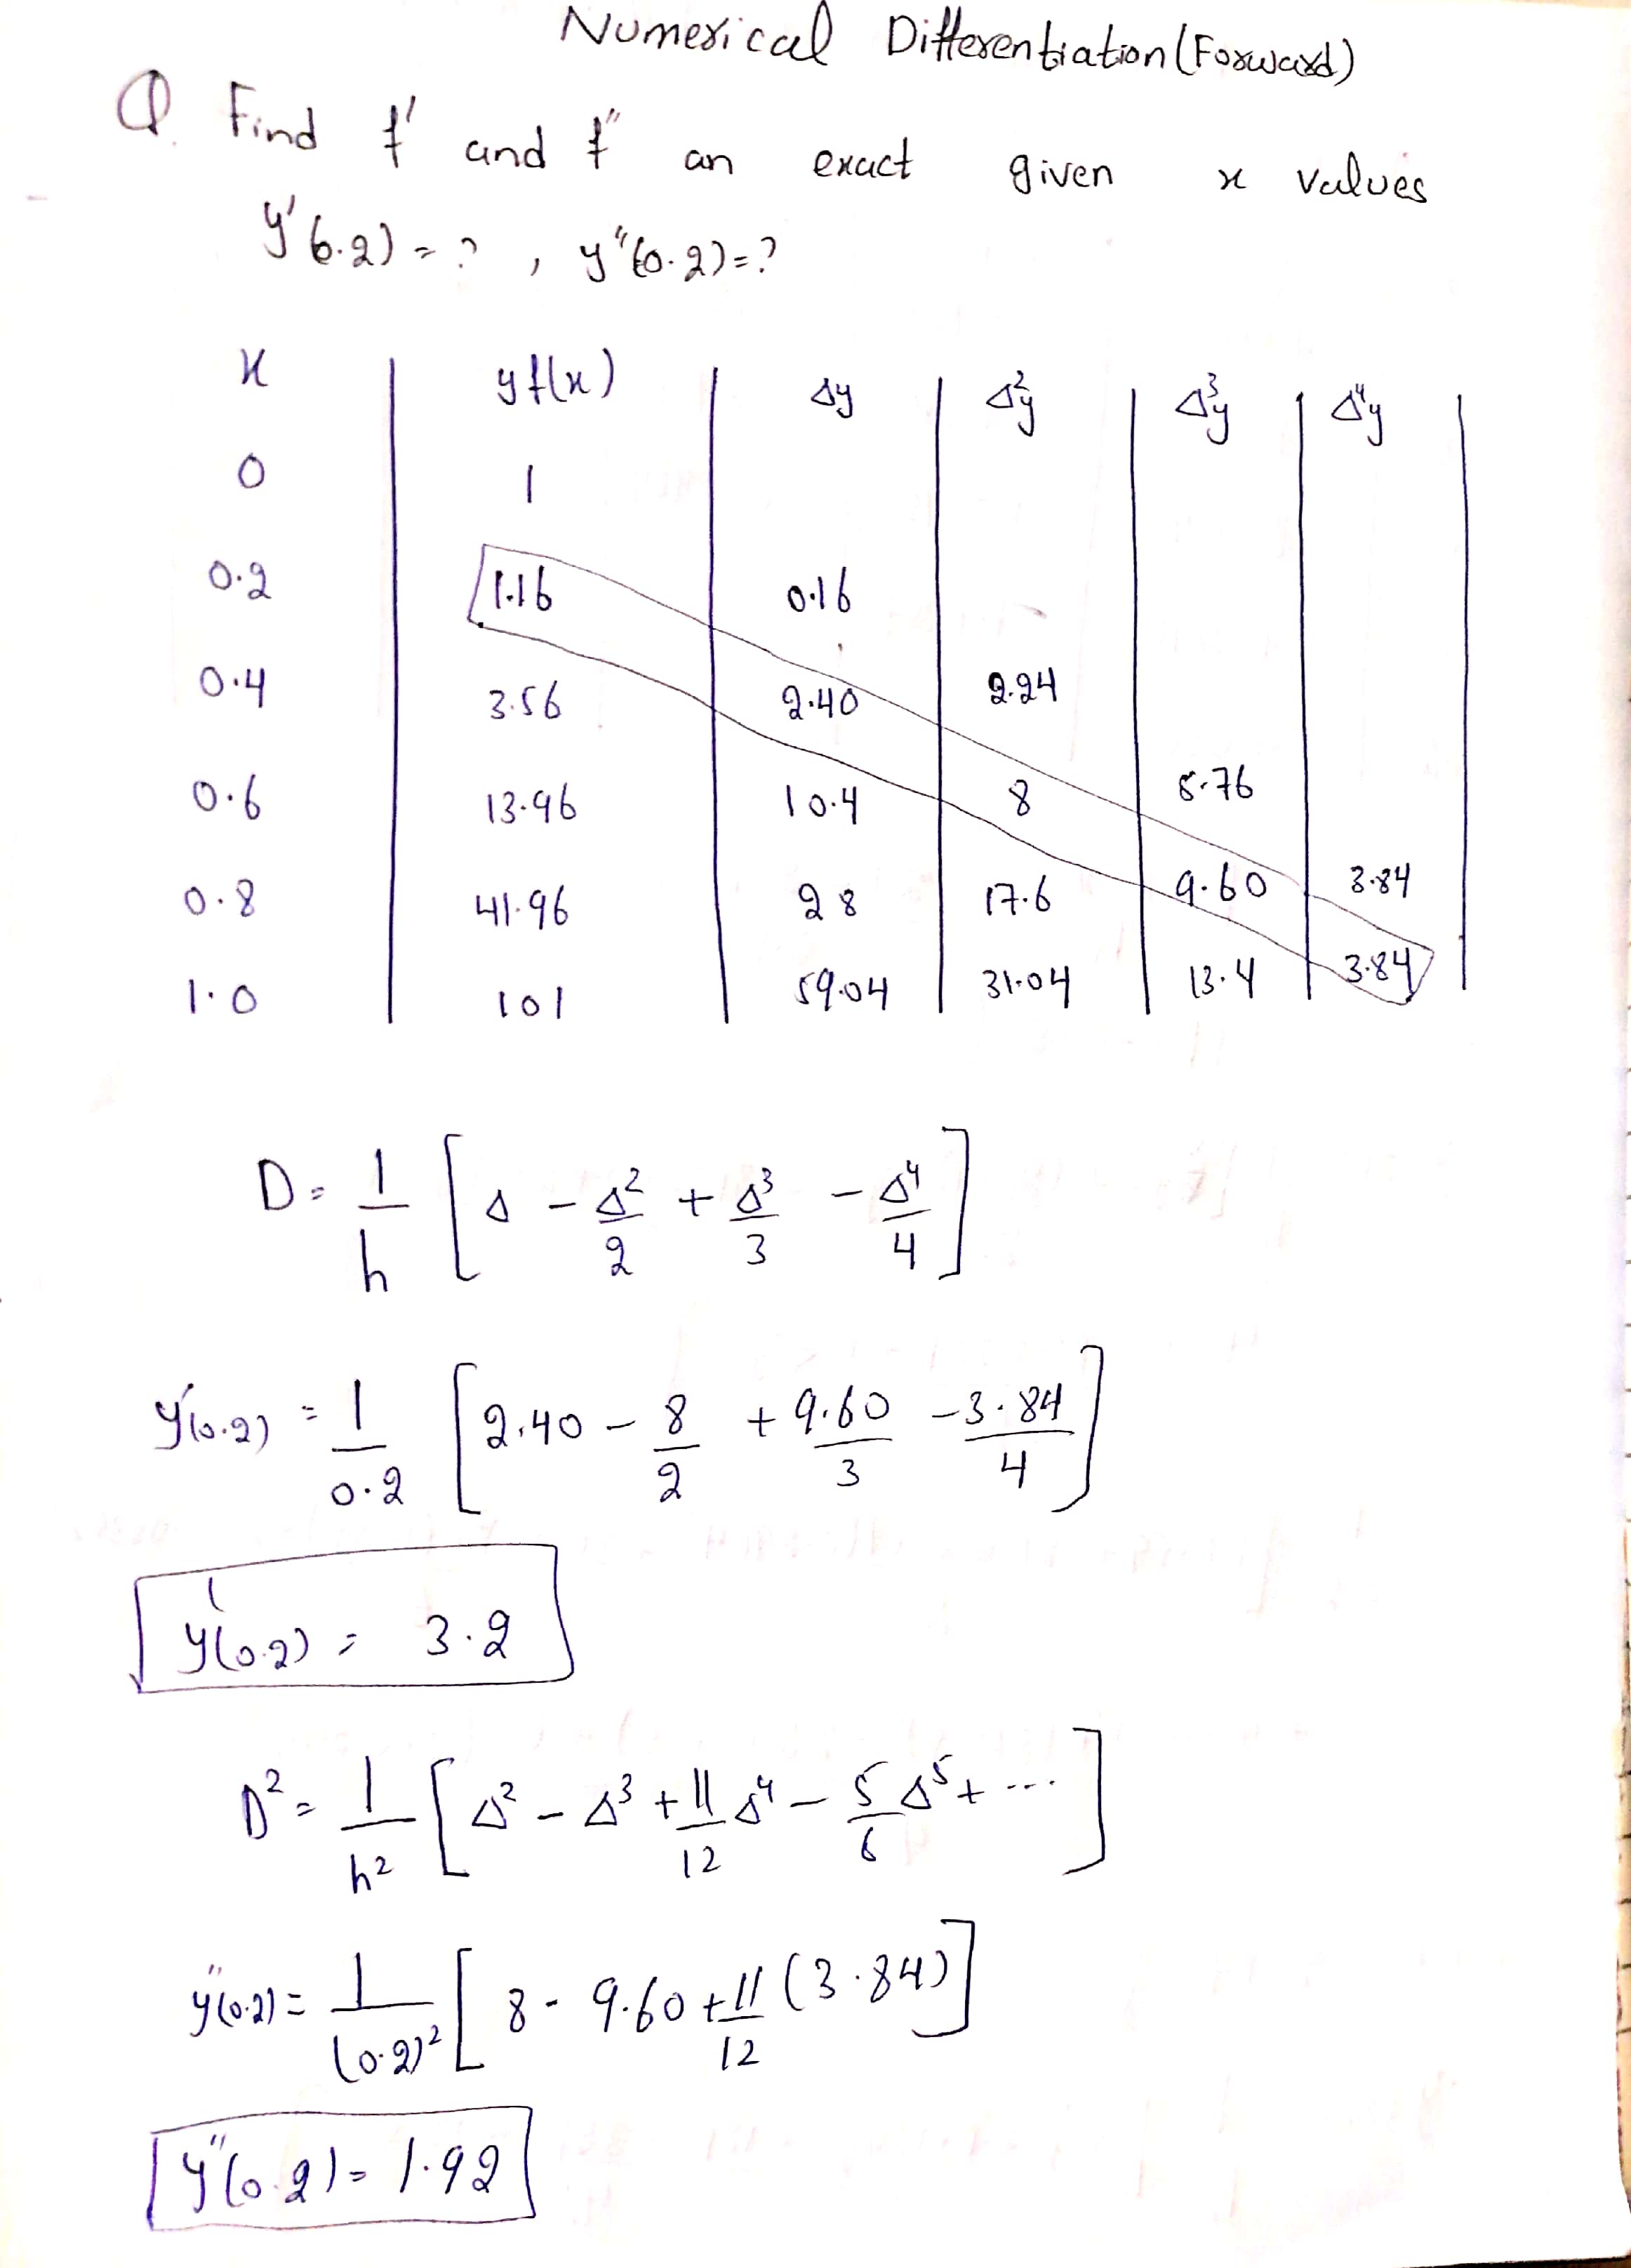 Numerical Differentiation (Forward)
Q. Find f' and f" an exact given x values
y'(0.2) = ? , y"(0.2) = ?
x | y f(x) | Δy | Δ²y | Δ³y | Δ⁴y |
0 | 1
0.2 | 1.16 | 0.16
0.4 | 3.56 | 2.40 | 2.24
0.6 | 13.96 | 10.4 | 8 | 5.76
0.8 | 41.96 | 28 | 17.6 | 9.60 | 3.84
1.0 | 101 | 59.04 | 31.04 | 13.4 | 3.84
D = 1/h [Δ - Δ²/2 + Δ³/3 - Δ⁴/4]
y'(0.2) = 1/0.2 [2.40 - 8/2 + 9.60/3 - 3.84/4]
y'(0.2) = 3.2
D² = 1/h² [Δ² - Δ³ + 11/12 Δ⁴ - 5/6 Δ⁵ + ...]
y"(0.2) = 1/(0.2)² [8 - 9.60 + 11/12 (3.84)]
y"(0.2) = 1.92